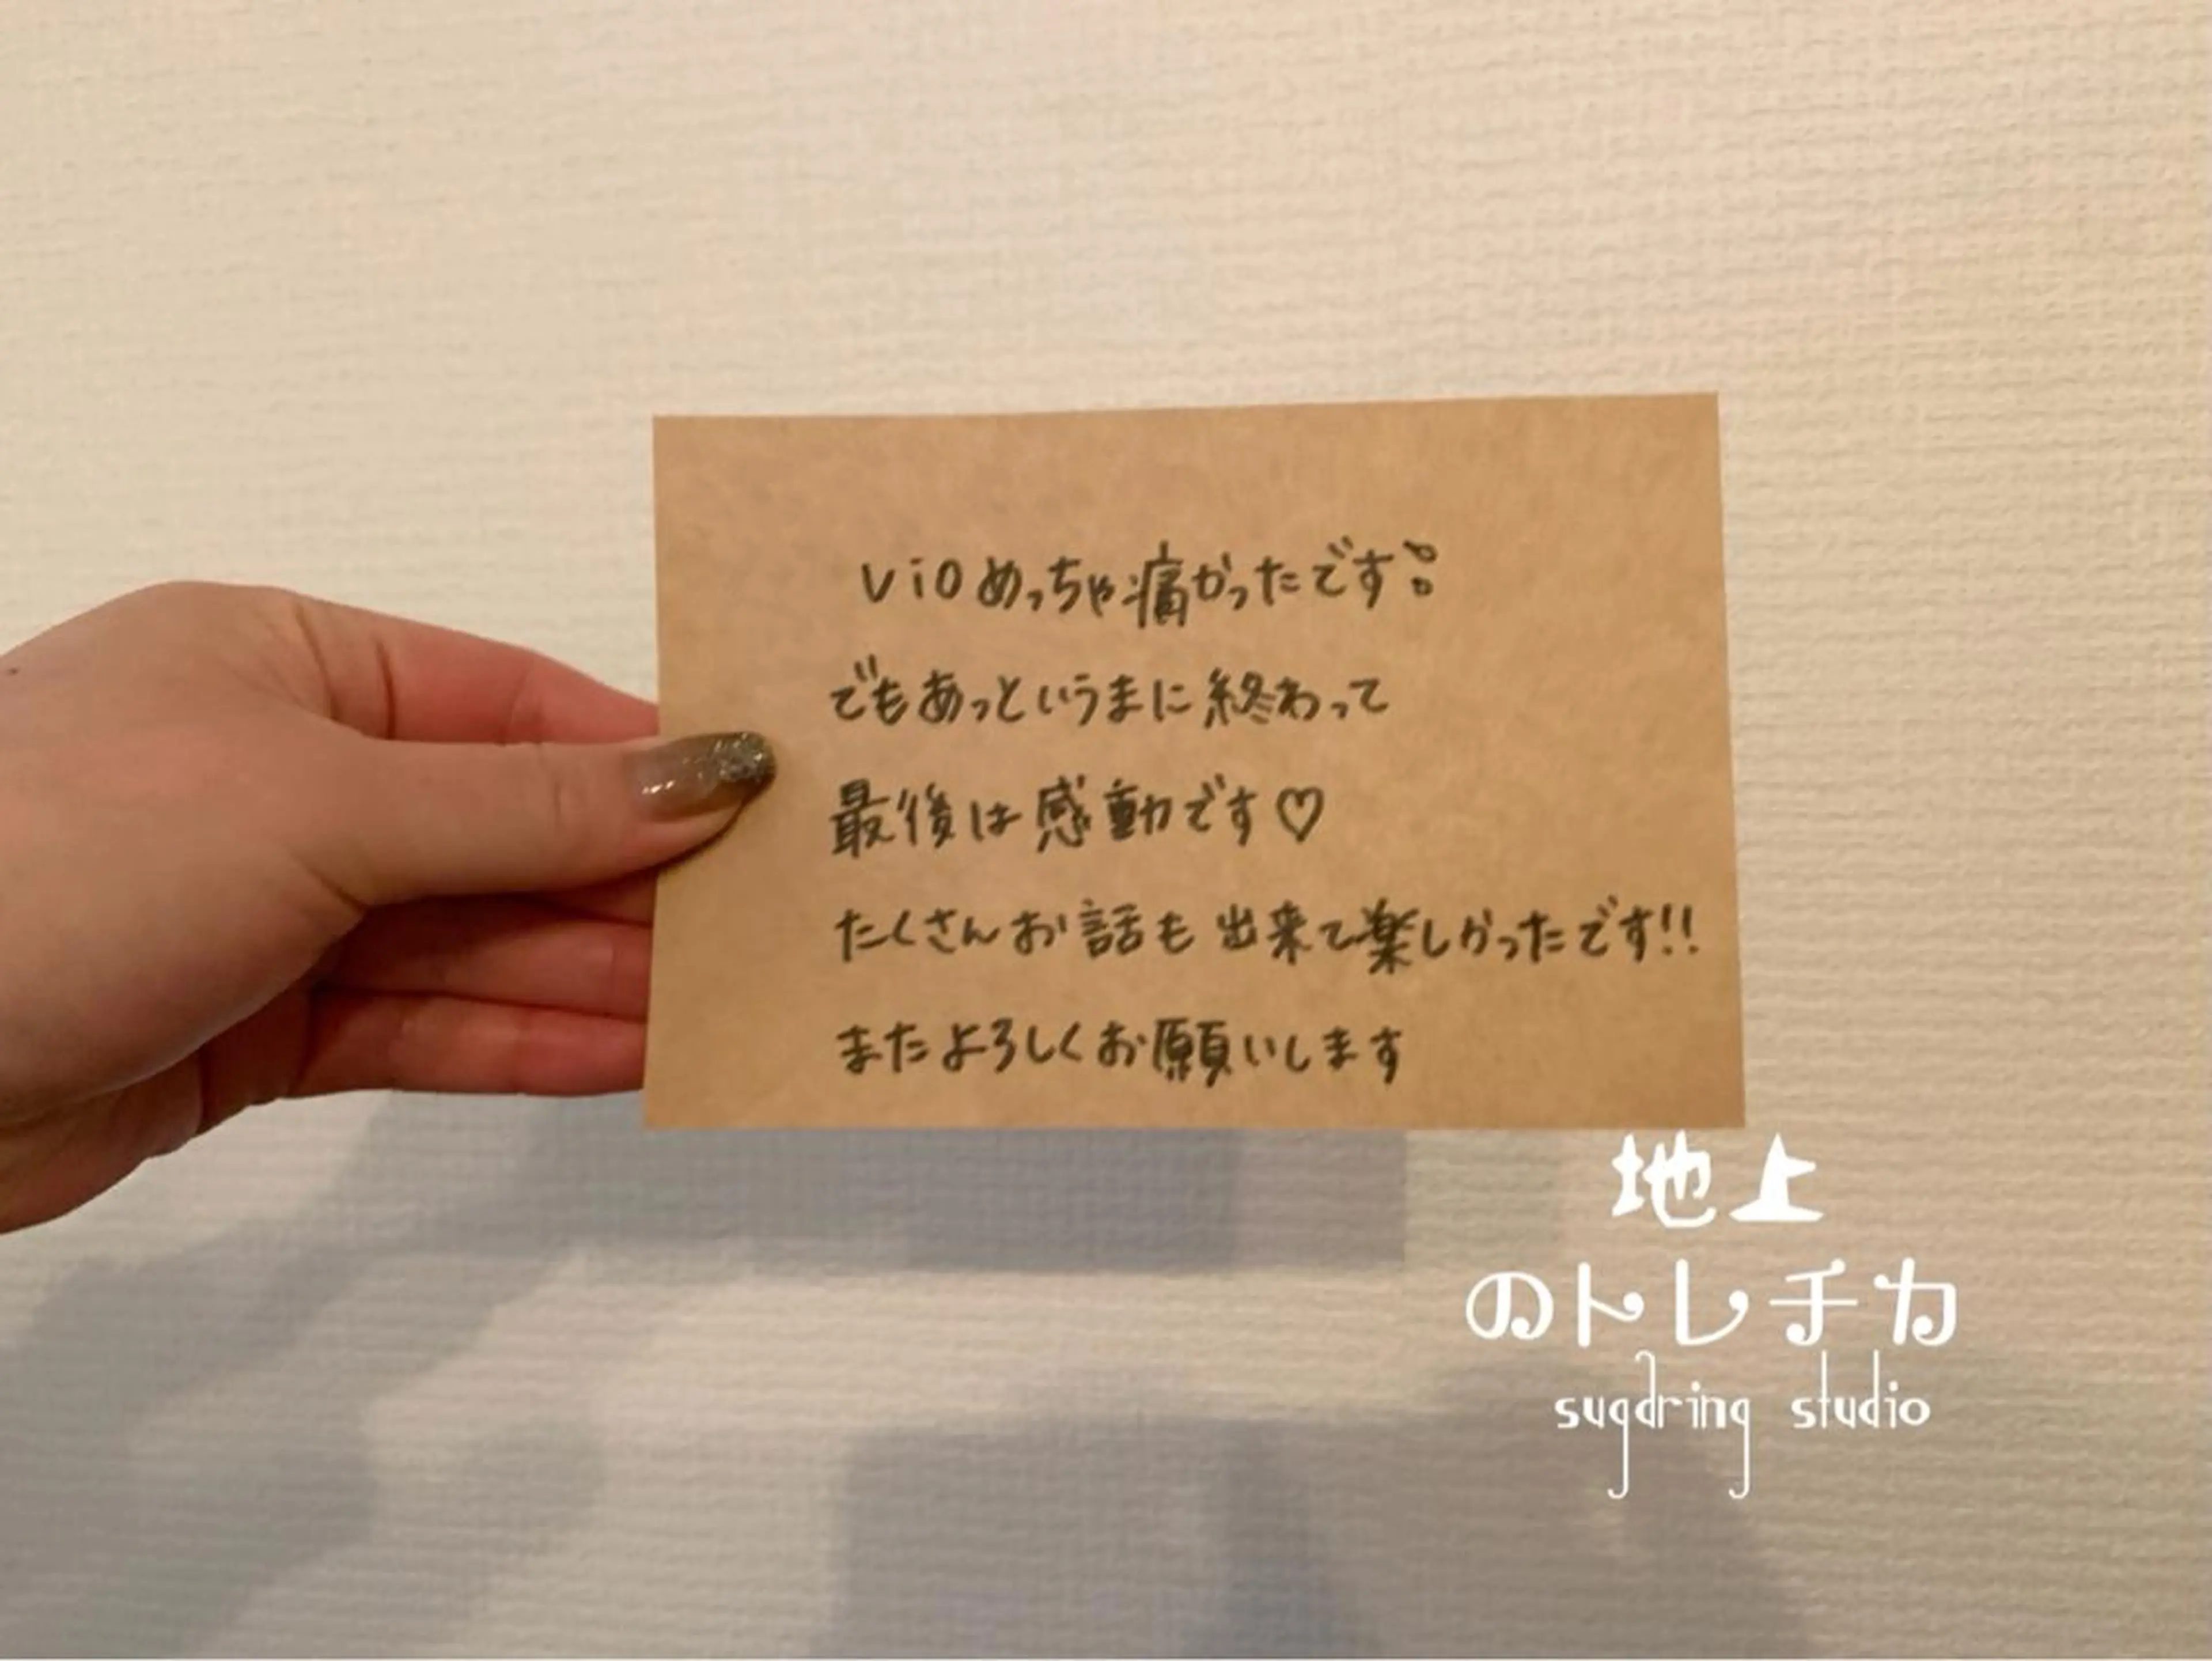 vioめっちゃ痛かったです
でもあっというまに終わって
最後は感動です♡
たくさんお話も出来て楽しかったです!!
またよろしくお願いします
地上
のトレチカ
sugdring studio